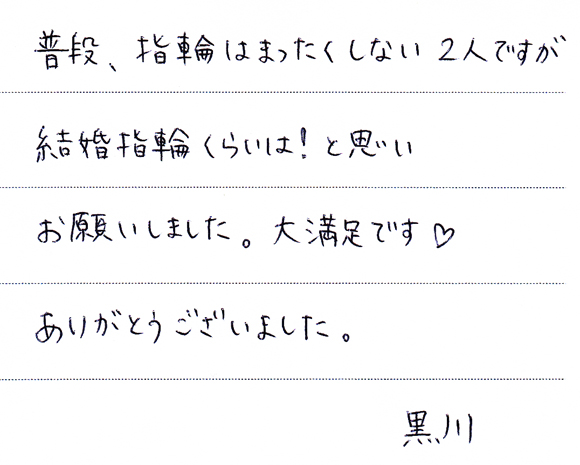 普段、指輪はまったくしない2人ですが
結婚指輪くらいは!と思い
お願いしました。大満足です♡
ありがとうございました。
黒川